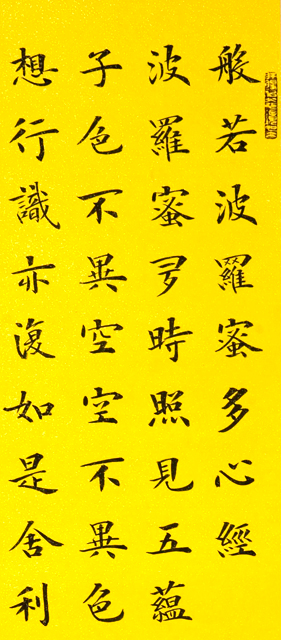 般若波羅蜜多心經
波羅蜜多時照見五蘊
子色不異空空不異色
想行識亦復如是舍利